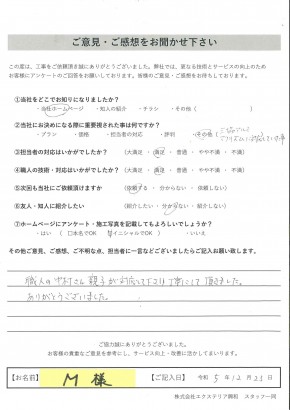 ご意見・ご感想をお聞かせ下さい
この度は、工事をご依頼頂き誠にありがとうございました。弊社では、更なる技術とサービスの向上のため
お客様にアンケートのご回答をお願いしております。皆様のご意見・ご感想をお待ちしております。
①当社をどこでお知りになりましたか?
・当社ホームページ ・知人の紹介 ・チラシ ・その他( )
②当社にお決めになる際に重要視された事は何ですか?
・プラン ・価格 ・担当者の対応 ・評判 ・その他(
③担当者の対応はいかがでしたか? (大満足 ・ 満足 ・ 普通 ・ やや不満 ・ 不満)
④職人の技術・対応はいかがでしたか? (大満足 ・ 満足 ・ 普通 ・ やや不満 ・ 不満)
⑤次回も当社にご依頼頂けますか (依頼する ・ 分からない ・ 依頼しない)
⑥友人・知人に紹介したい (紹介したい ・ 分からない ・ 紹介しない)
⑦ホームページにアンケート・施工写真を記載してもよろしいでしょうか?
・はい (□本名でOK ☑イニシャルでOK) ・いいえ
その他ご意見、ご感想、ご不明な点、担当者に一言などございましたらご記入お願い致します。
職人の中村さん親子が対応して下さり丁寧にして頂きました。
ありがとうございました。
ご協力誠にありがとうございました。
お客様の貴重なご意見を参考にし、サービス向上・改善に活かしてまいります。
【お名前】 M 様 【ご記入日】 令和 5年12月23日
株式会社エクステリア興和 スタッフ一同